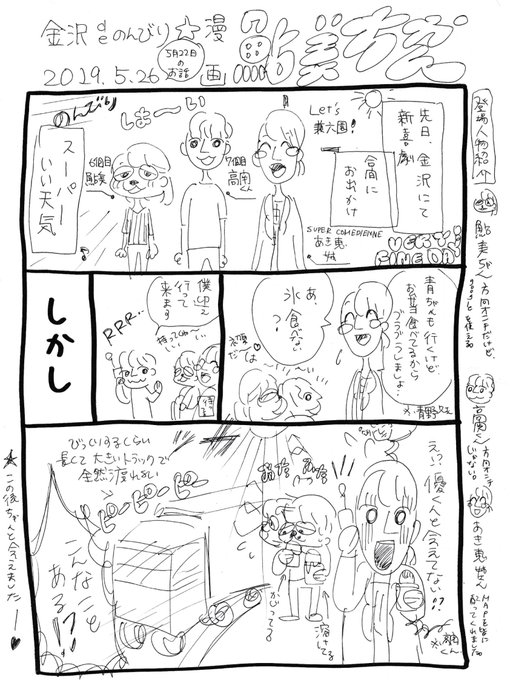 金沢deのんびり☆漫画
5月22日のお話
2019.5.26
登場人物紹介
方向オンチだけど、
高南くん
方向オンチじゃない。
あき恵姉さん
MAPを皆に配ってくれました
先日、金沢にて
新喜劇
合間に
お出かけ
Let's
兼六園!
SUPER COMEDIENNE
あき恵
姉
VERY!
FINE DAY
7個目
高南くん
6個目
しまーい
のんびり
スーパー
いい天気
青ちゃんも行くけど
お弁当食べてるから
ブラブラしましょ。
※青野さん
あ、
氷食べない
?
僕迎え
行って
来ます
RRR...
しかし
え?優くんと会えてない!?
※高南くん
溶けてる
かじってる
びっくりするくらい
長くて大きいトラックで
全然渡れない
ピーピーピー
ピーピーピー
こんなこと
ある!?
★この後ちゃんと会えました